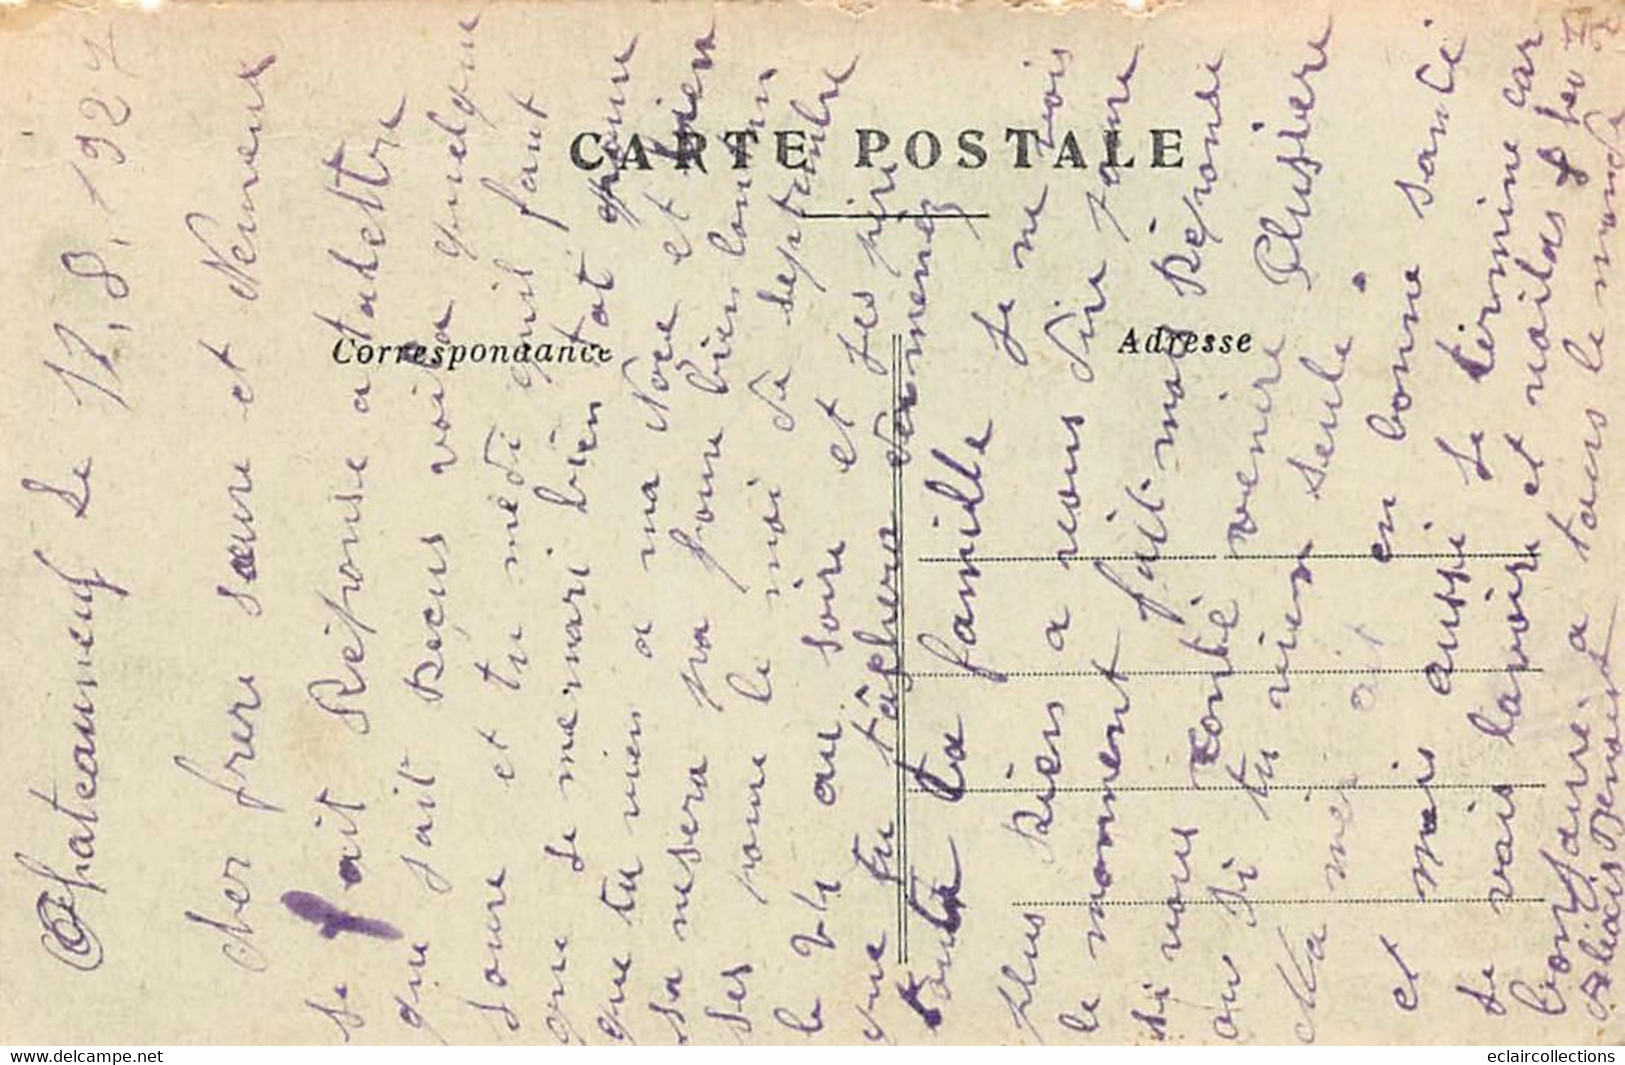 CARTE POSTALE
Correspondance
Adresse
Chateauneuf Le 17.8.1927
Cher frere sœure et Neveux
Je fait Réponse a ta lettre
que jait Reçus voila quelque
joure et tu me di quil faut
que je me mari bien tot pour
que tu vien a ma Noce et bien
sa nesera pa pour bien lontin
ses pour le moi de septembre
le 24 au soire et jes
que tu tâcheras damener
toute ta famille Je ne vois
plus Rien a vous dire pour
le moment fait mas Réponse
si vous conté venire Plusiere
ou si tu vien seule.
Ma
et en bonne santé
et mois aussi Je termine car
Je vais lavoire et
bonjoure a tous le monde
Alexis Benoist
eclaircollections